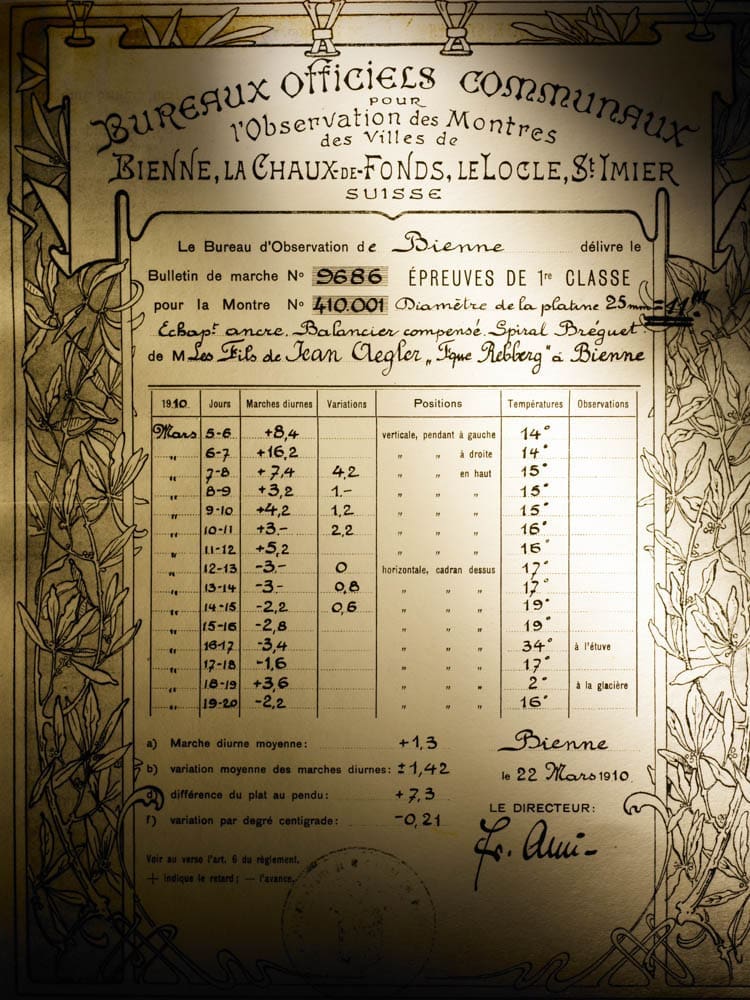 BUREAUX OFFICIELS COMMUNAUX
POUR
l'Observation des Montres
des Villes de
BIENNE, LA CHAUX-DE-FONDS, LE LOCLE, St IMIER
SUISSE
Le Bureau d'Observation de Bienne délivre le
Bulletin de marche No 9686 ÉPREUVES DE 1re CLASSE
pour la Montre No 410.001 Diamètre de la platine 25 mm = 11'''
Échapt ancre. Balancier compensé. Spiral Bréguet
de M Les Fils de Jean Aegler, „Fque Rebberg" à Bienne
1910. Jours Marches diurnes Variations Positions Températures Observations
Mars 5-6 +8,4 verticale, pendant à gauche 14°
„ 6-7 +16,2 „ „ à droite 14°
„ 7-8 +7,4 4,2 „ „ en haut 15°
„ 8-9 +3,2 1.- „ „ „ 15°
„ 9-10 +4,2 1,2 „ „ „ 15°
„ 10-11 +3.- 2,2 „ „ „ 16°
„ 11-12 +5,2 „ „ „ 16°
„ 12-13 -3.- 0 horizontale, cadran dessus 17°
„ 13-14 -3.- 0,8 „ „ „ 17°
„ 14-15 -2,2 0,6 „ „ „ 19°
„ 15-16 -2,8 „ „ „ 19°
„ 16-17 -3,4 „ „ „ 34° à l'étuve
„ 17-18 -1,6 „ „ „ 17°
„ 18-19 +3,6 „ „ „ 2° à la glacière
„ 19-20 -2,2 „ „ „ 16°
a) Marche diurne moyenne: +1,3
b) variation moyenne des marches diurnes: ±1,42
d) différence du plat au pendu: +7,3
f) variation par degré centigrade: -0,21
Bienne
le 22 Mars 1910.
LE DIRECTEUR:
Voir au verso l'art. 6 du règlement.
+ indique le retard; — l'avance.